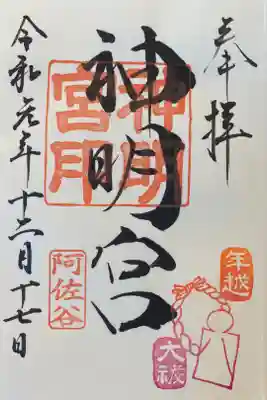 奉拝
神明宮
神明宮印
令和元年十二月十七日
阿佐谷
年越
大祓